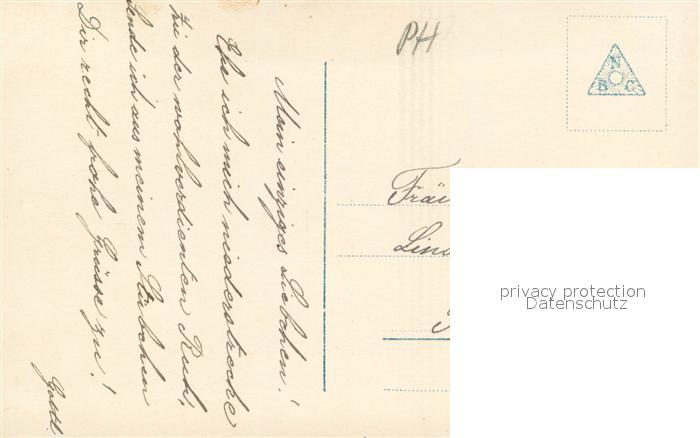 Mein einziges Liebchen!
Ehe ich mich niederstrecke
Zu der wohlverdienten Ruh,
Sende ich aus meinem Stübchen
Dir recht frohe Grüsse zu!
PH
N
B C
privacy protection
Datenschutz